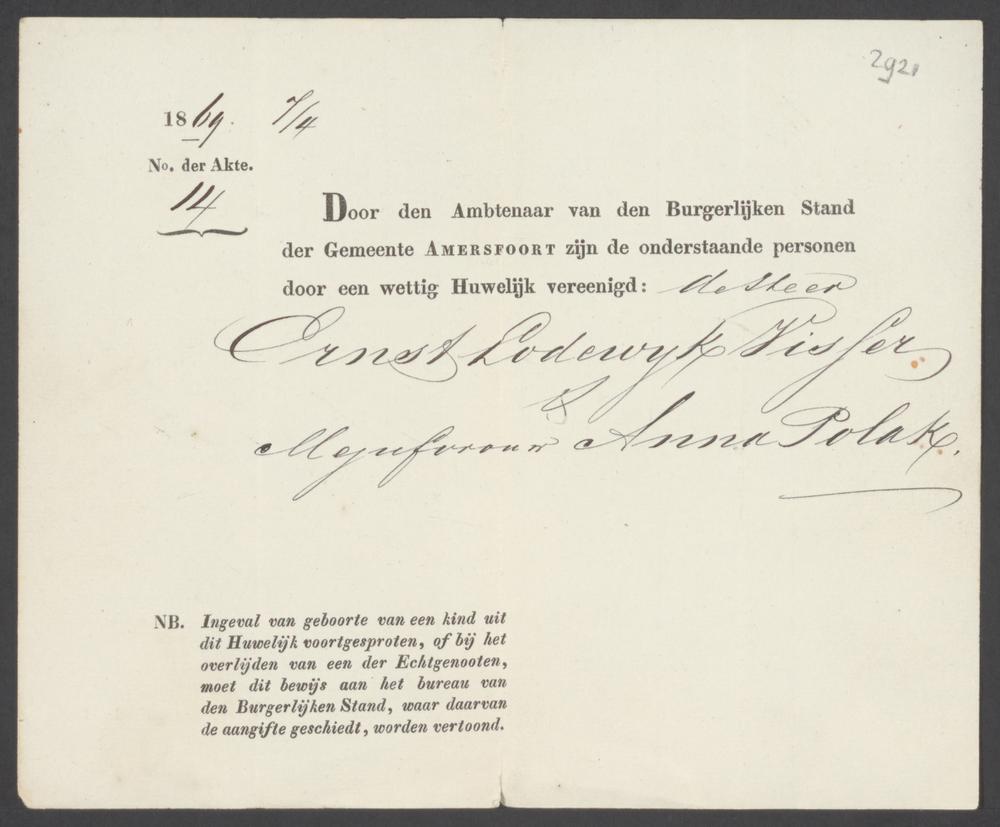 2921
1869. 7/4
No. der Akte.
14
Door den Ambtenaar van den Burgerlijken Stand
der Gemeente AMERSFOORT zijn de onderstaande personen
door een wettig Huwelijk vereenigd: de Heer
Ernst Lodewyk Visser
&
Mejufvrouw Anna Polak.
NB. Ingeval van geboorte van een kind uit
dit Huwelijk voortgesproten, of bij het
overlijden van een der Echtgenooten,
moet dit bewijs aan het bureau van
den Burgerlijken Stand, waar daarvan
de aangifte geschiedt, worden vertoond.